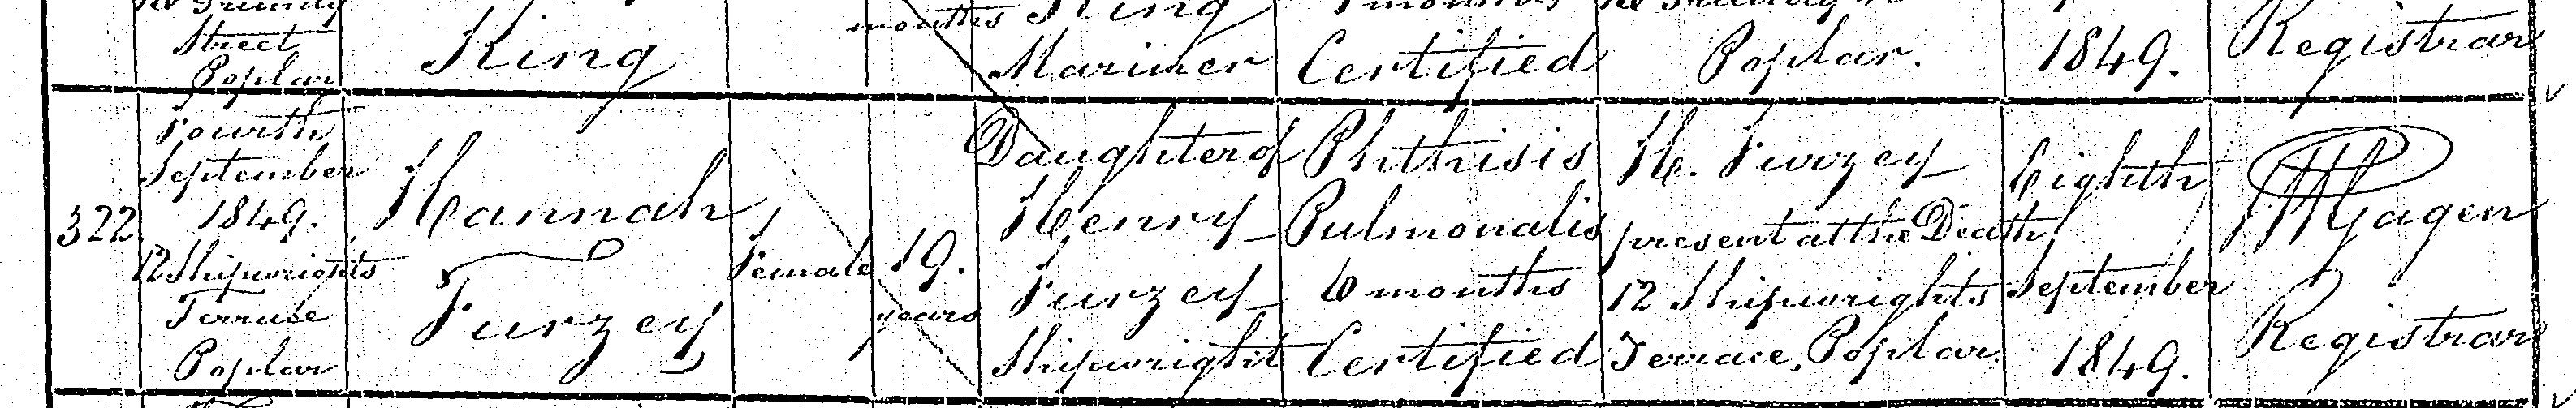 Street
Poplar
King
months
King
Mariner
Certified
Poplar.
1849.
Registrar
322
Fourth
September
1849.
12 Shipwrights
Terrace
Poplar
Hannah
Furzey
Female
19.
years
Daughter of
Henry
Furzey
Shipwright
Phthisis
Pulmonalis
6 months
Certified
H. Furzey
present at the Death
12 Shipwrights
Terrace, Poplar.
Eighth
September
1849.
Registrar